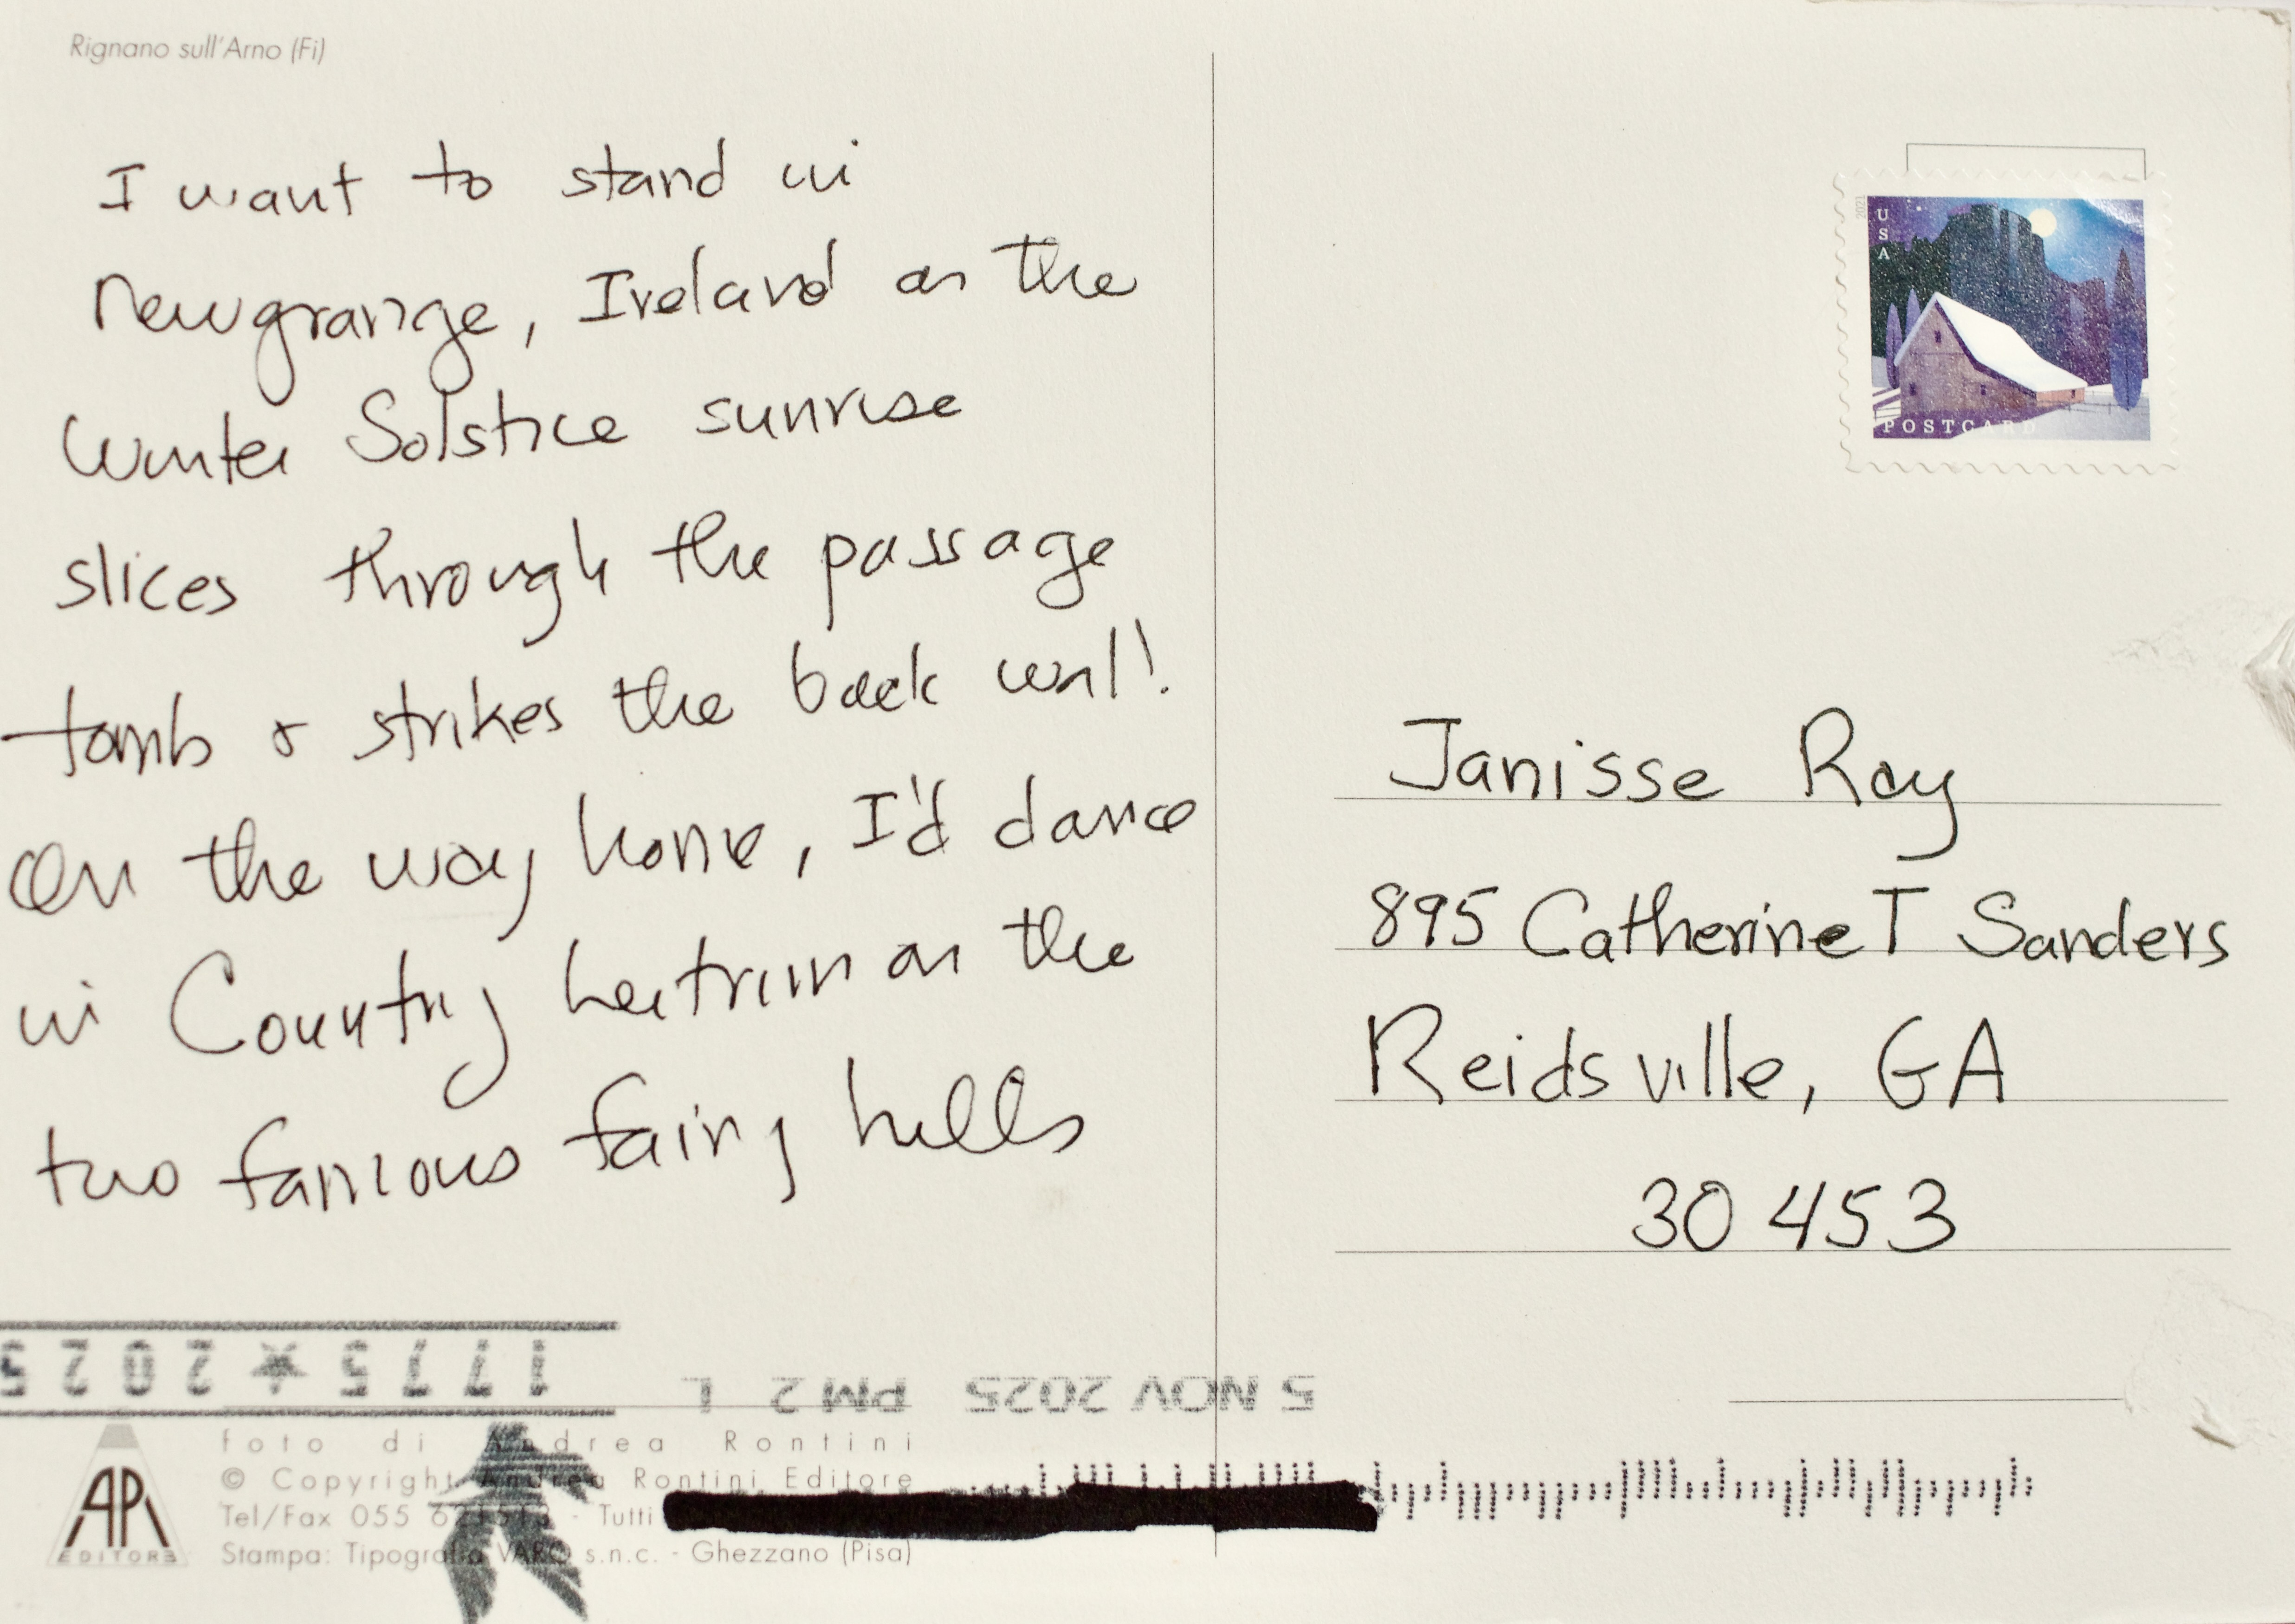 Rignano sull'Arno (Fi)
I want to stand in
newgrange, Ireland on the
Winter Solstice sunrise
slices through the passage
tomb & strikes the back wall!
On the way home, I'd dance
in Country Leitrim on the
two famous fairy hills
2021
USA
POSTCARD
Janisse Ray
895 Catherine T Sanders
Reidsville, GA
30453
1775★2025
5 NOV 2025 PM 2 L
foto di Andrea Rontini
© Copyright Andrea Rontini Editore
Tel/Fax 055 - Tutti
Stampa: Tipografia VARO s.n.c. - Ghezzano (Pisa)
AR
EDITORE